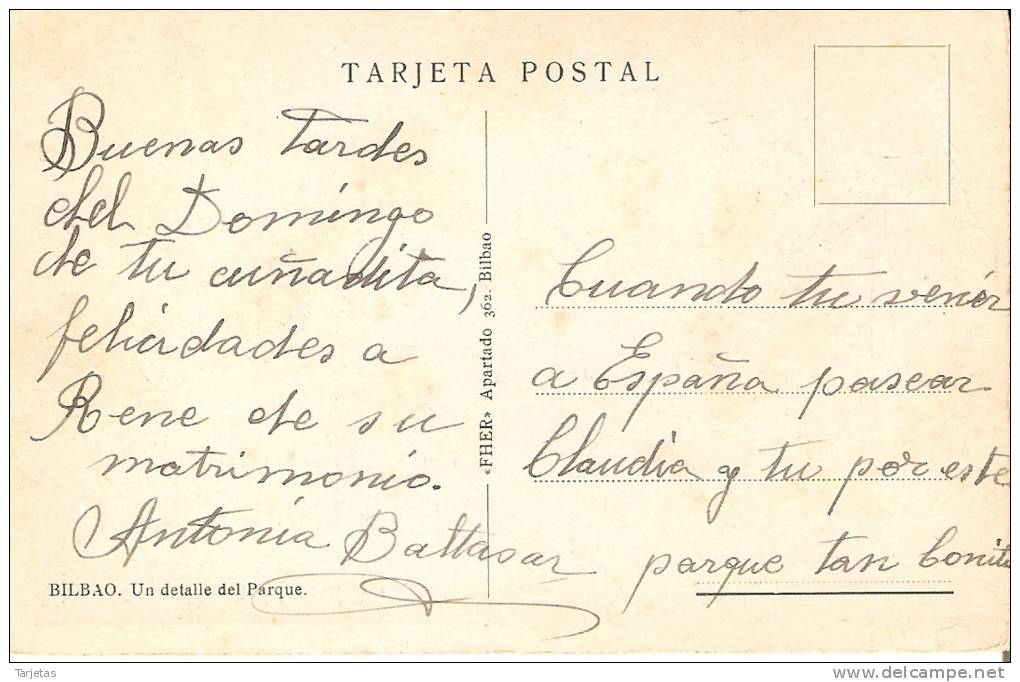 TARJETA POSTAL
Buenas tardes
del Domingo
de tu cuñadita,
felicidades a
Rene de su
matrimonio.
Antonia Baltasar
BILBAO. Un detalle del Parque.
«FHER» Apartado 362. Bilbao
Cuando tu venir
a España pasear
Claudia y tu por este
parque tan bonito
Tarjetas
www.delcampe.net